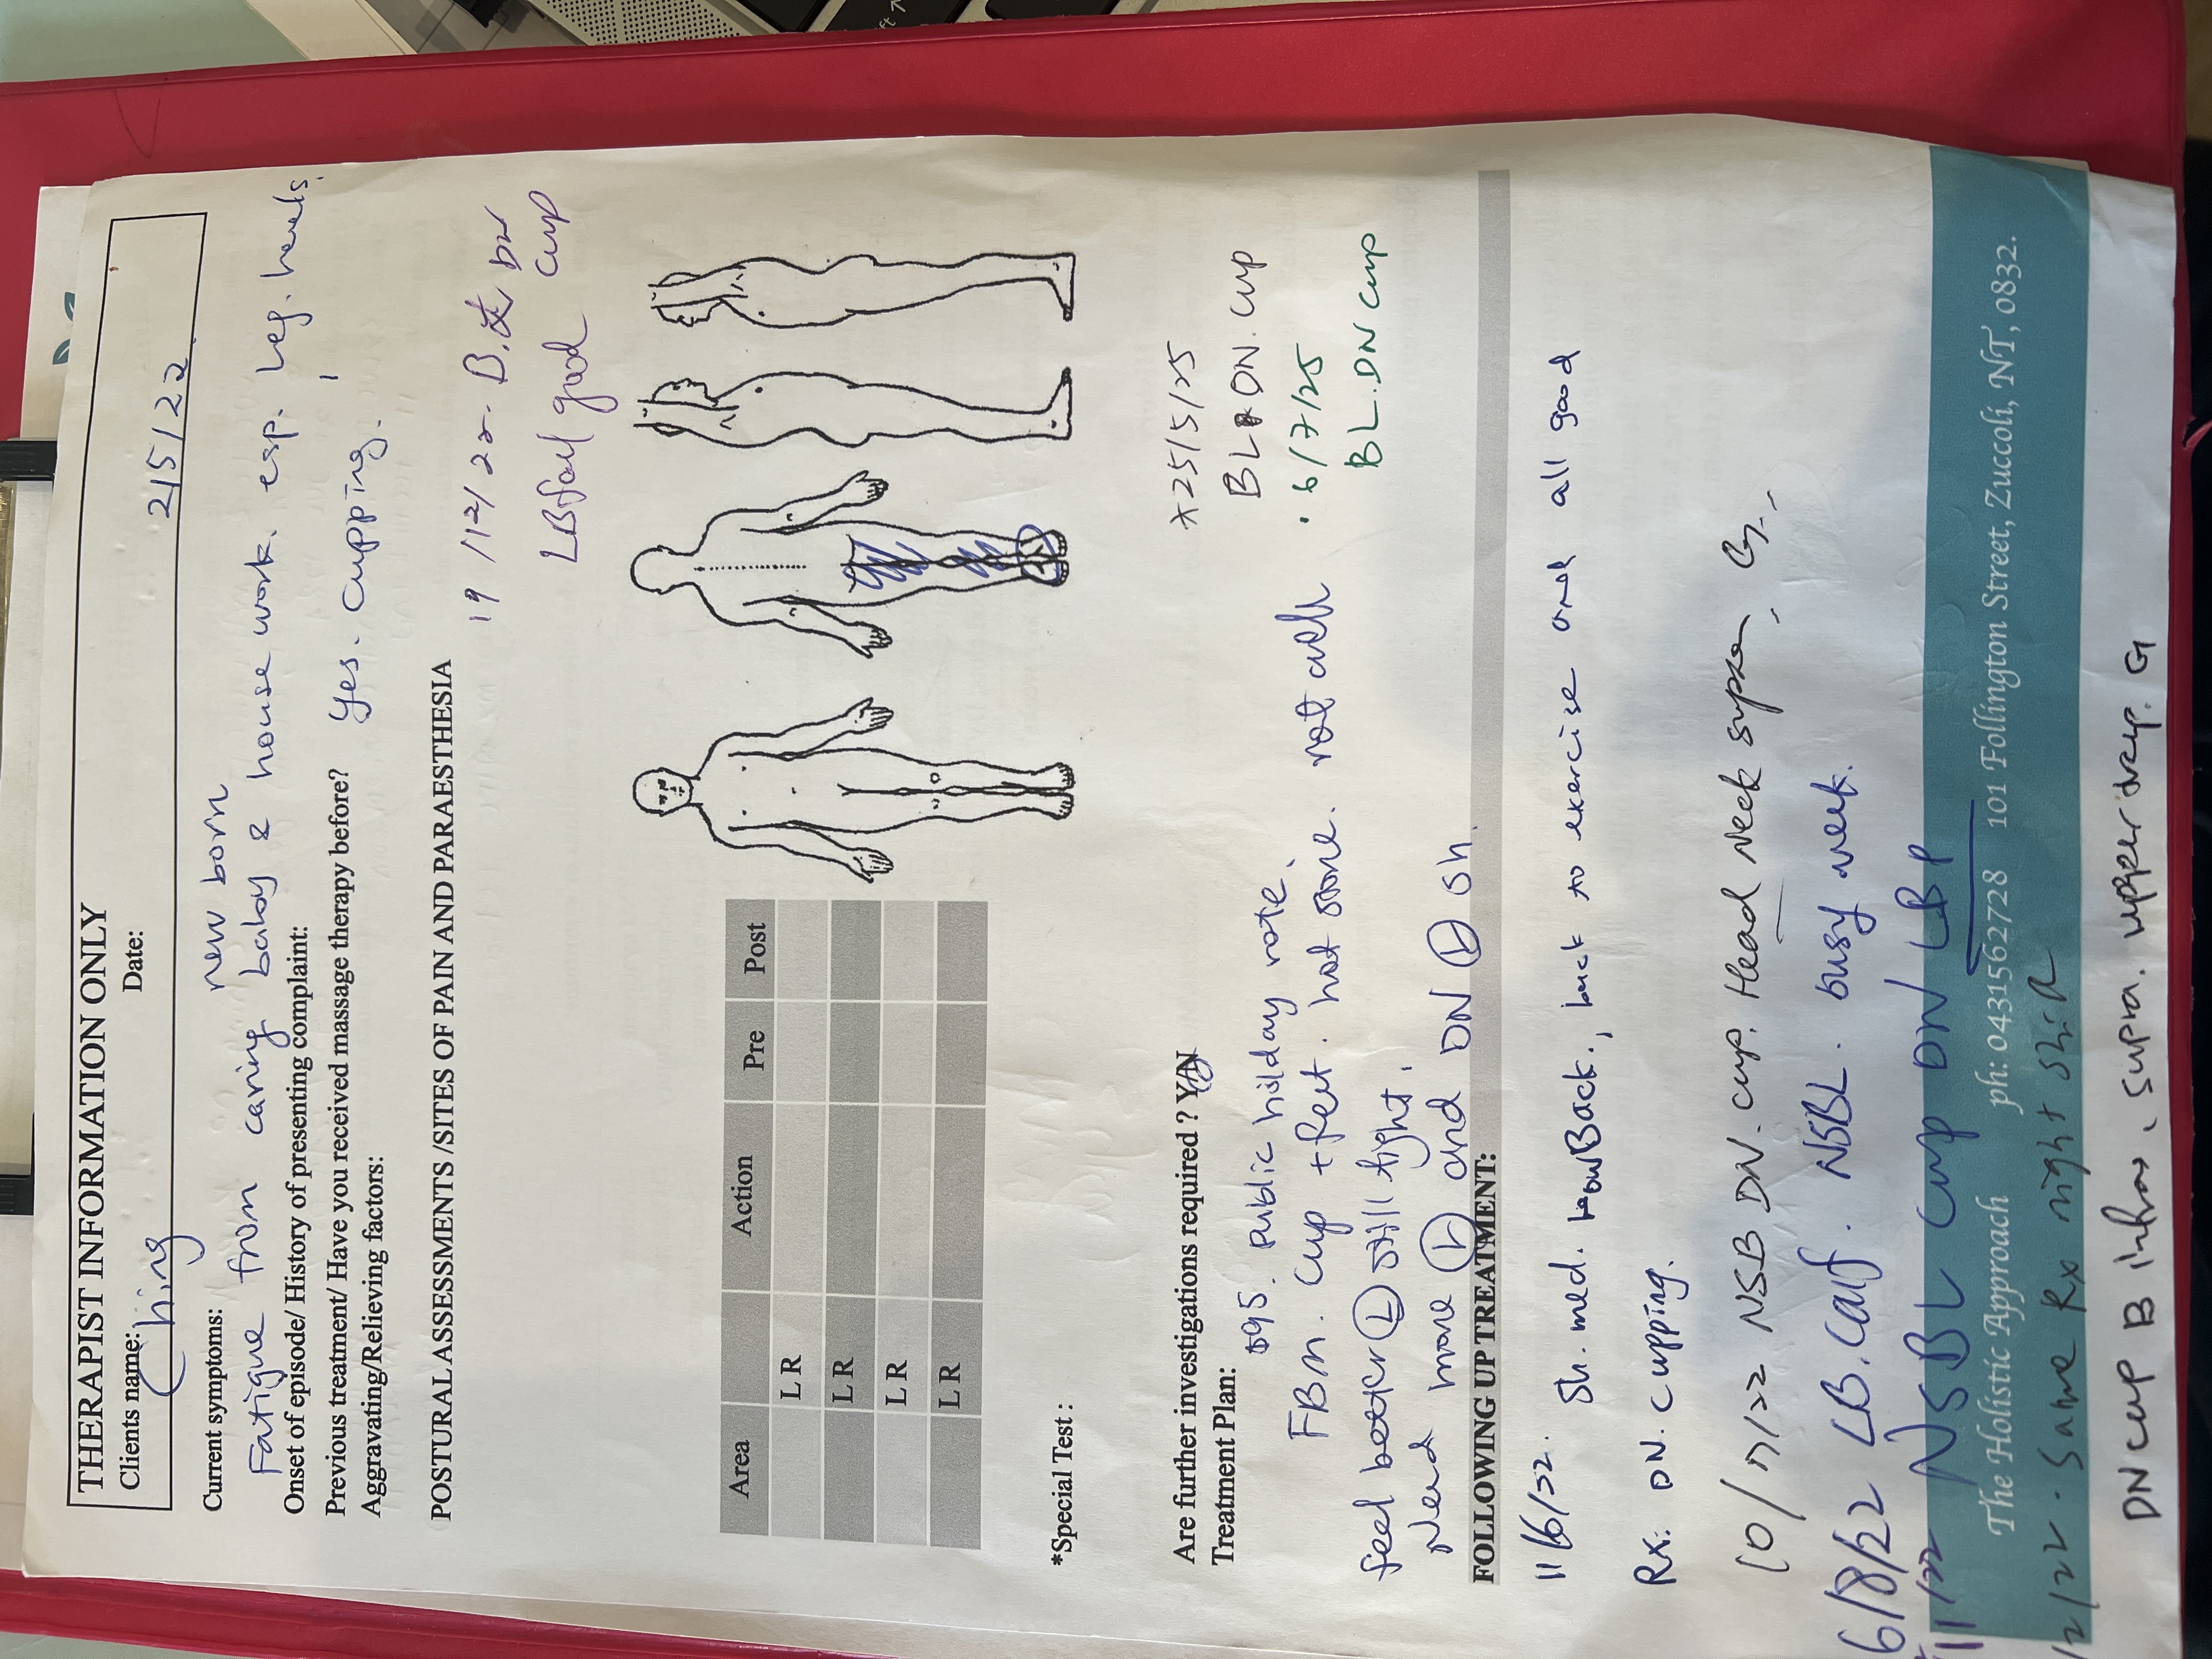 THERAPIST INFORMATION ONLY
Clients name: Ching Date: 2/5/22
Current symptoms: new born
Fatigue from caring baby & house work. esp. Leg. heels.
Onset of episode/ History of presenting complaint:
Previous treatment/ Have you received massage therapy before? Yes. Cupping.
Aggravating/Relieving factors:
POSTURAL ASSESSMENTS /SITES OF PAIN AND PARAESTHESIA
19/12/22. B. DN
LB feel good cup
Area Action Pre Post
L R
L R
L R
L R
*Special Test :
Are further investigations required ? Y/N
*25/5/25
BL DN. cup
Treatment Plan: $95. public holiday rate.
FBM. Cup + feet. not sore. not ach
. 6/7/25
BL. DN cup
feel better L still tight.
need more L and DN L sh.
FOLLOWING UP TREATMENT:
11/6/22. Sh. med. Low Back. , back to exercise and all good
Rx. DN. cupping.
10/7/22 NSB DN. cup. Head Neck
6/8/22 LB. Calf. NSBL. busy week.
11/22 NSBL cup DN LBP
The Holistic Approach ph: 0431562728 101 Follington Street, Zuccoli, NT, 0832.
12/22. Same Rx right sh R
DN cup B infra. supra. upper trap. G